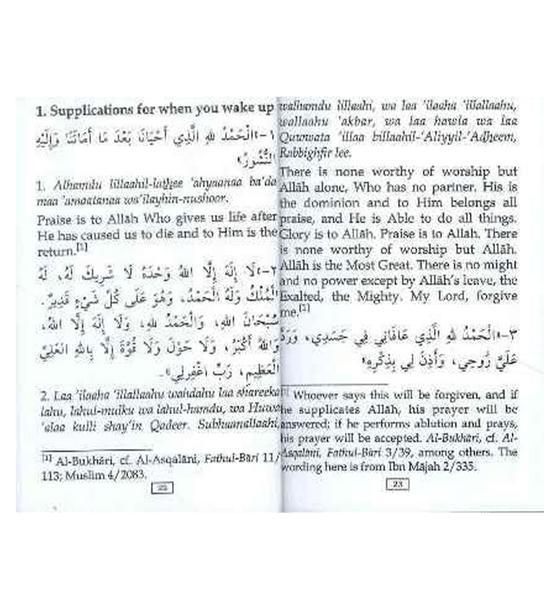 1. Supplications for when you wake up
١- «الْحَمْدُ لِلَّهِ الَّذِي أَحْيَانَا بَعْدَ مَا أَمَاتَنَا وَإِلَيْهِ
النُّشُورُ»
1. Alhamdu lillaahil-lathee 'ahyaanaa ba'da
maa 'amaatanaa wa'ilayhin-nushoor.
Praise is to Allāh Who gives us life after
He has caused us to die and to Him is the
return.[1]
٢- «لَا إِلَهَ إِلَّا اللهُ وَحْدَهُ لَا شَرِيكَ لَهُ، لَهُ
الْمُلْكُ وَلَهُ الْحَمْدُ، وَهُوَ عَلَى كُلِّ شَيْءٍ قَدِيرٌ.
سُبْحَانَ اللهِ، وَالْحَمْدُ لِلَّهِ، وَلَا إِلَهَ إِلَّا اللهُ،
وَاللهُ أَكْبَرُ، وَلَا حَوْلَ وَلَا قُوَّةَ إِلَّا بِاللهِ الْعَلِيِّ
الْعَظِيمِ، رَبِّ اغْفِرْلِي».
2. Laa 'ilaaha 'illallaahu wahdahu laa shareeka
lahu, lahul-mulku wa lahul-hamdu, wa Huwa
'alaa kulli shay'in Qadeer. Subhaanallaahi,
[1] Al-Bukhāri, cf. Al-Asqalāni, Fathul-Bāri 11/
113; Muslim 4/2083.
22
walhamdu lillaahi, wa laa 'ilaaha 'illallaahu,
wallaahu 'akbar, wa laa hawla wa laa
Quwwata 'illaa billaahil-'Aliyyil-'Adheem,
Rabbighfir lee.
There is none worthy of worship but
Allāh alone, Who has no partner, His is
the dominion and to Him belongs all
praise, and He is Able to do all things.
Glory is to Allāh. Praise is to Allah. There
is none worthy of worship but Allāh.
Allāh is the Most Great. There is no might
and no power except by Allāh's leave, the
Exalted, the Mighty. My Lord, forgive
me.[1]
٣- «الْحَمْدُ لِلَّهِ الَّذِي عَافَانِي فِي جَسَدِي، وَرَدَّ
عَلَيَّ رُوحِي، وَأَذِنَ لِي بِذِكْرِهِ»
[1] Whoever says this will be forgiven, and if
he supplicates Allāh, his prayer will be
answered; if he performs ablution and prays,
his prayer will be accepted. Al-Bukhāri, cf. Al-
Asqalāni, Fathul-Bāri 3/39, among others. The
wording here is from Ibn Mājah 2/335.
23